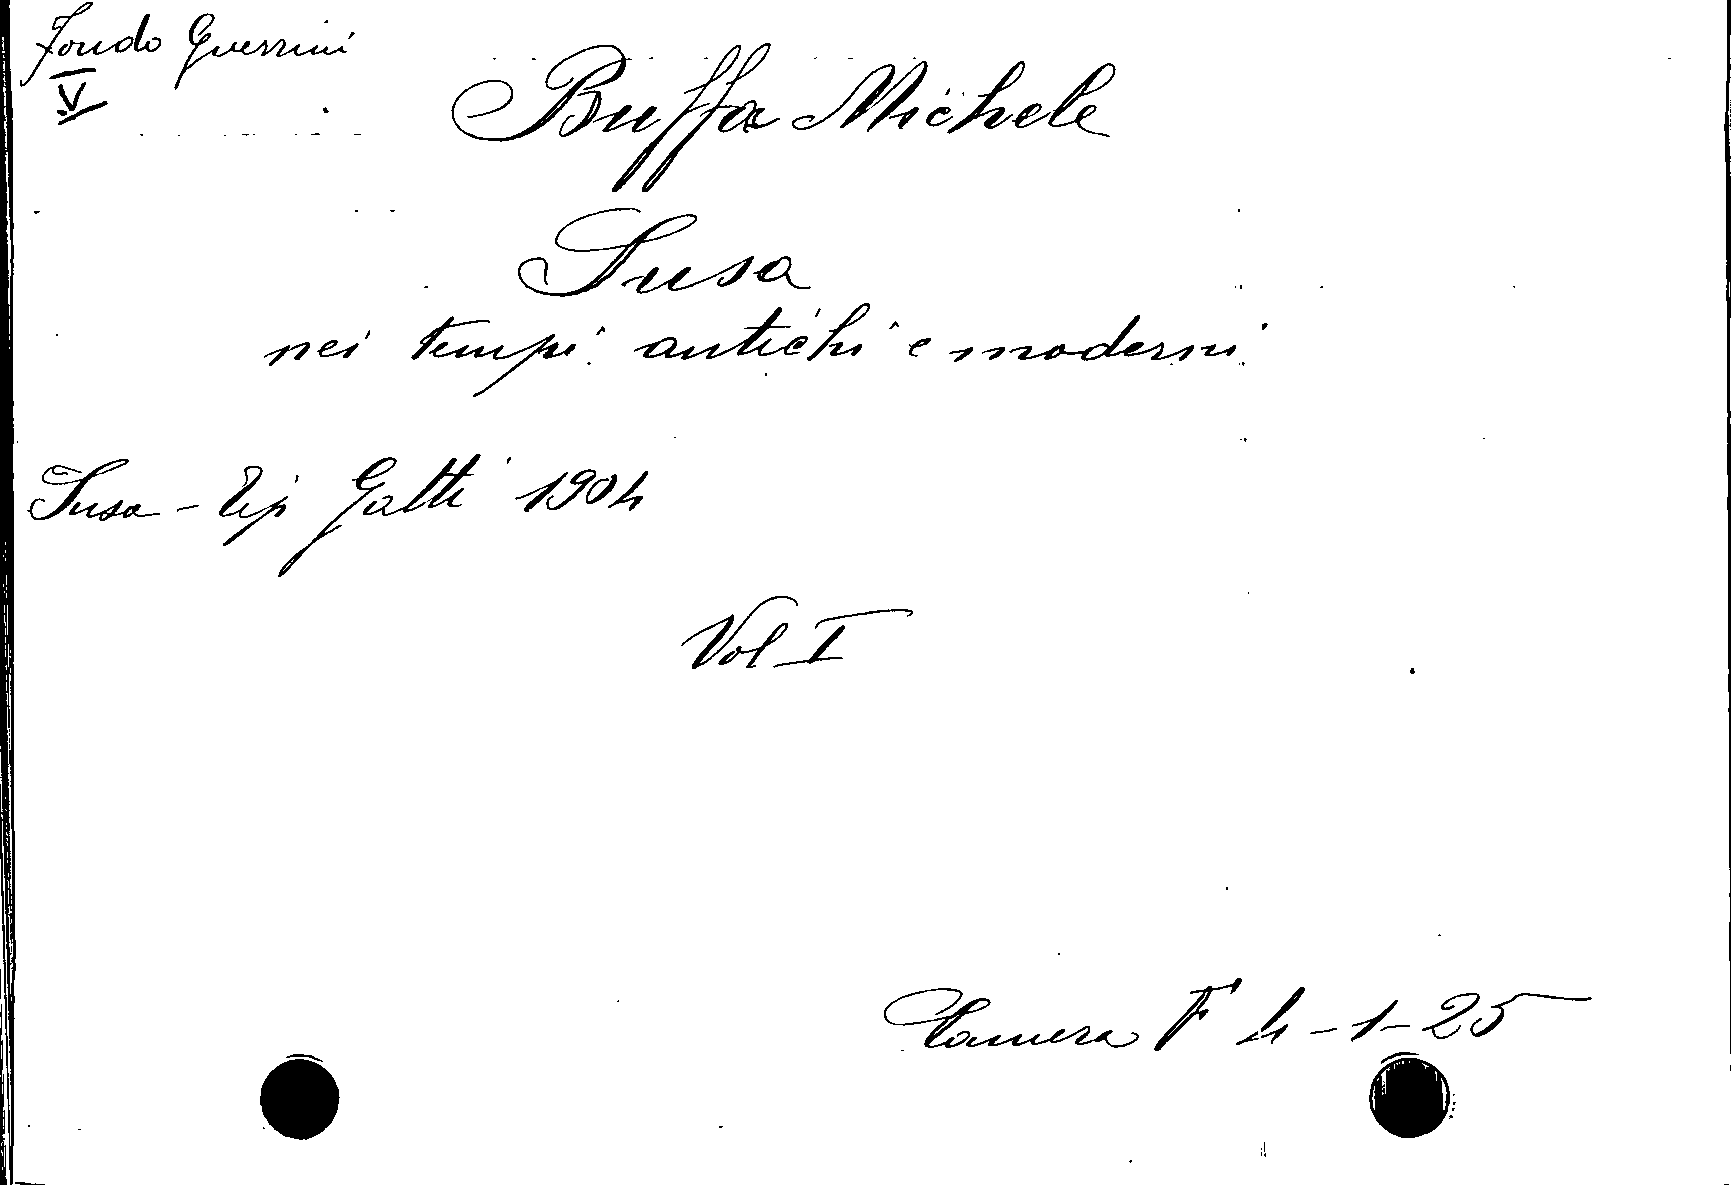 Fondo Guerrini
V
Buffa Michele
Susa
nei tempi antichi e moderni
Susa - Tip Gatti 1904
Vol I
Camera F 4-1-25